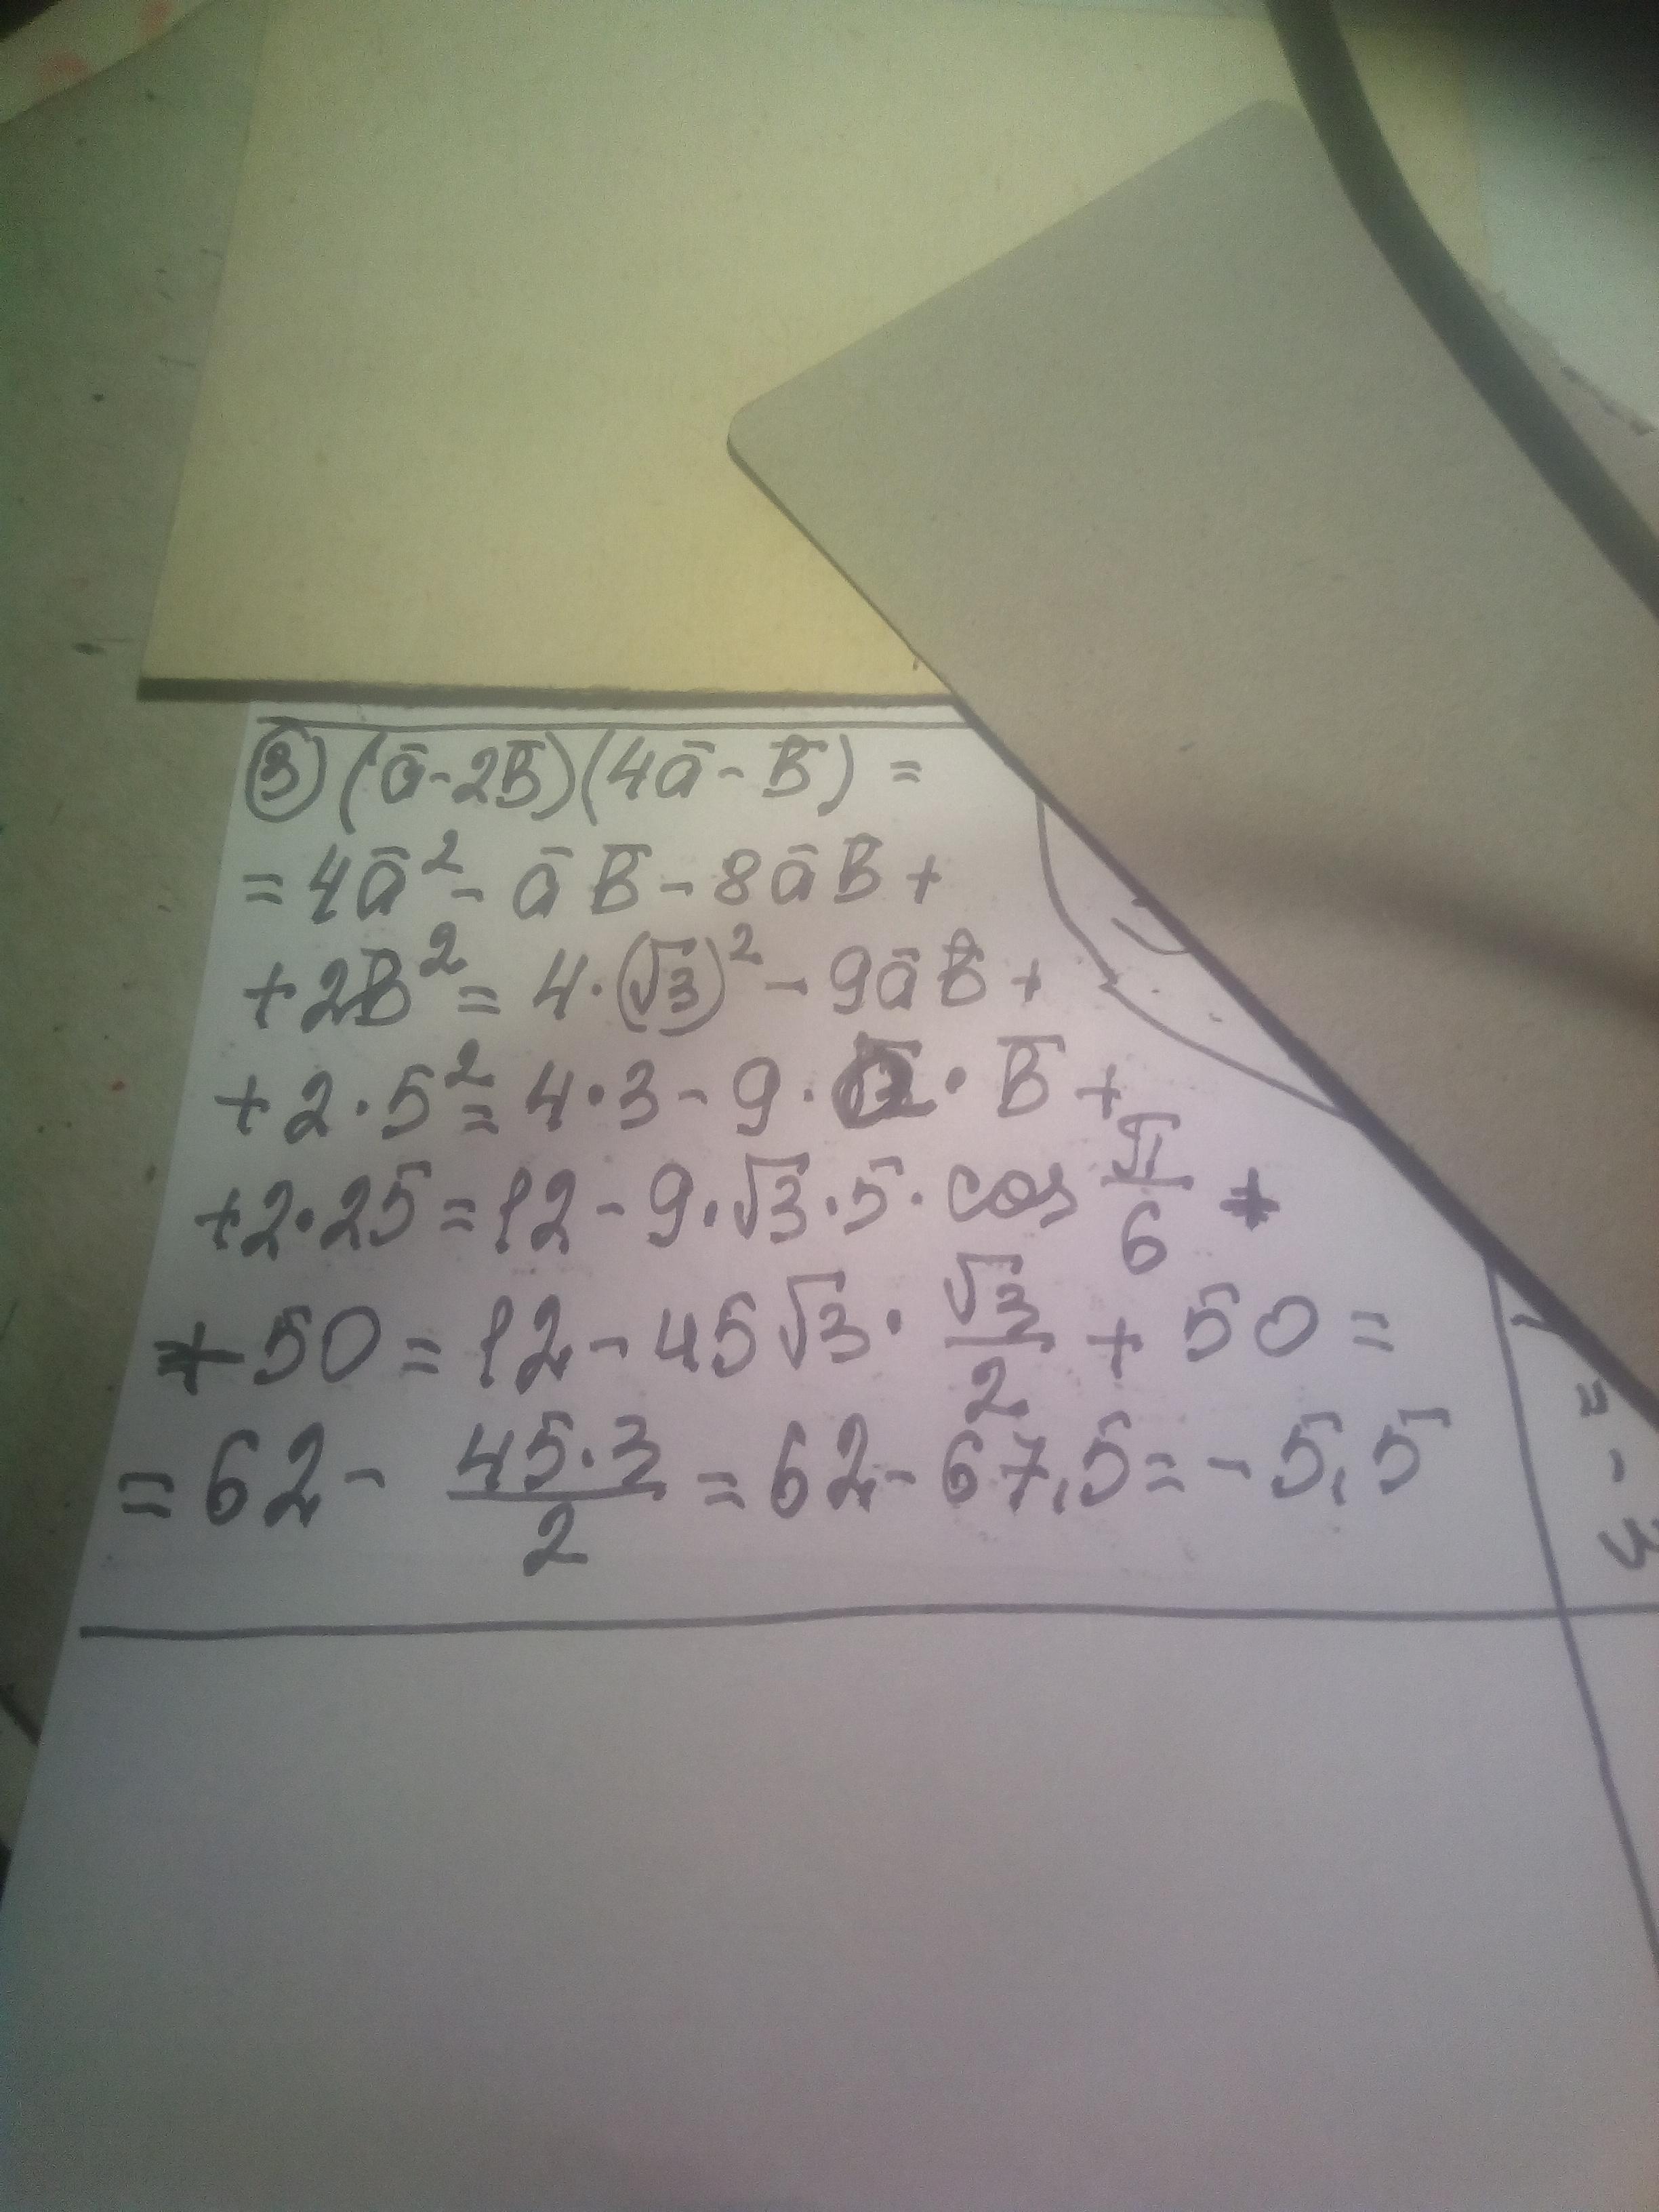 ③ (ā-2b̄)(4ā-b̄) =
= 4ā² - āb̄ - 8āb̄ +
+ 2b̄² = 4·(√3)² - 9āb̄ +
+ 2·5² = 4·3 - 9·ā·b̄ +
+2·25 = 12 - 9·√3·5·cos π/6 +
+ 50 = 12 - 45√3 · √3/2 + 50 =
= 62 - 45·3/2 = 62 - 67,5 = -5,5